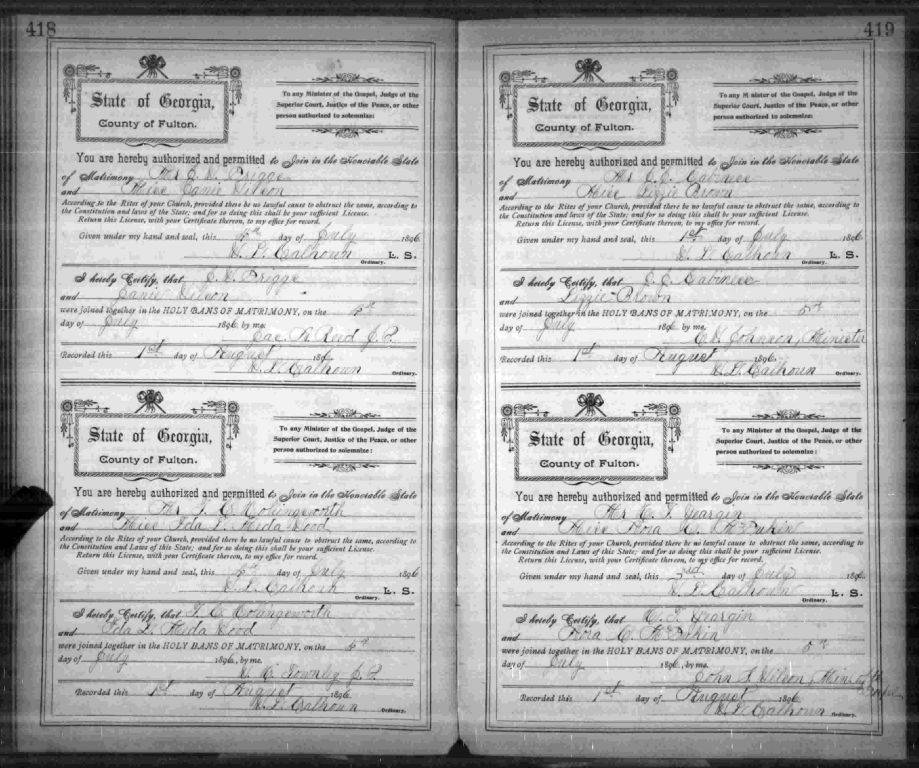 418
State of Georgia,
County of Fulton.
To any Minister of the Gospel, Judge of the
Superior Court, Justice of the Peace, or other
person authorized to solemnize:
You are hereby authorized and permitted to Join in the Honorable State
of Matrimony Mr
and Miss
According to the Rites of your Church, provided there be no lawful cause to obstruct the same, according to
the Constitution and laws of the State; and for so doing this shall be your sufficient License.
Return this License, with your Certificate thereon, to my office for record.
Given under my hand and seal, this 5th day of July 1896
Calhoun L. S.
Ordinary.
I hereby Certify, that
and
were joined together in the HOLY BANS OF MATRIMONY, on the 5th
day of July 1896 by me.
Reed J.P.
Recorded this 1st day of August 1896
Calhoun Ordinary.
State of Georgia,
County of Fulton.
To any Minister of the Gospel, Judge of the
Superior Court, Justice of the Peace, or other
person authorized to solemnize:
You are hereby authorized and permitted to Join in the Honorable State
of Matrimony Mr
and Miss Ida L.
According to the Rites of your Church, provided there be no lawful cause to obstruct the same, according to
the Constitution and Laws of this State; and for so doing this shall be your sufficient License.
Return this License, with your Certificate thereon, to my office for record.
Given under my hand and seal, this 5th day of July 1896
Calhoun L. S.
Ordinary.
I hereby Certify, that
and Ida L.
were joined together in the HOLY BANS OF MATRIMONY, on the 5th
day of July 1896, by me.
J.P.
Recorded this 1st day of August 1896
Calhoun Ordinary.
419
State of Georgia,
County of Fulton.
To any Minister of the Gospel, Judge of the
Superior Court, Justice of the Peace, or other
person authorized to solemnize:
You are hereby authorized and permitted to Join in the Honorable State
of Matrimony Mr
and Miss Lizzie Brown
According to the Rites of your Church, provided there be no lawful cause to obstruct the same, according to
the Constitution and laws of the State; and for so doing this shall be your sufficient License.
Return this License, with your Certificate thereon, to my office for record.
Given under my hand and seal, this 1st day of July 1896
Calhoun L. S.
Ordinary.
I hereby Certify, that
and Lizzie Brown
were joined together in the HOLY BANS OF MATRIMONY, on the 5th
day of July 1896 by me.
Johnson, Minister
Recorded this 1st day of August 1896.
Calhoun Ordinary.
State of Georgia,
County of Fulton.
To any Minister of the Gospel, Judge of the
Superior Court, Justice of the Peace, or other
person authorized to solemnize:
You are hereby authorized and permitted to Join in the Honorable State
of Matrimony Mr Geargin
and Miss
According to the Rites of your Church, provided there be no lawful cause to obstruct the same, according to
the Constitution and Laws of this State; and for so doing this shall be your sufficient License.
Return this License, with your Certificate thereon, to my office for record.
Given under my hand and seal, this 3rd day of July 1896.
Calhoun L. S.
Ordinary.
I hereby Certify, that Geargin
and
were joined together in the HOLY BANS OF MATRIMONY, on the 5th
day of July 1896, by me.
John
Recorded this 1st day of August 1896
Calhoun Ordinary.